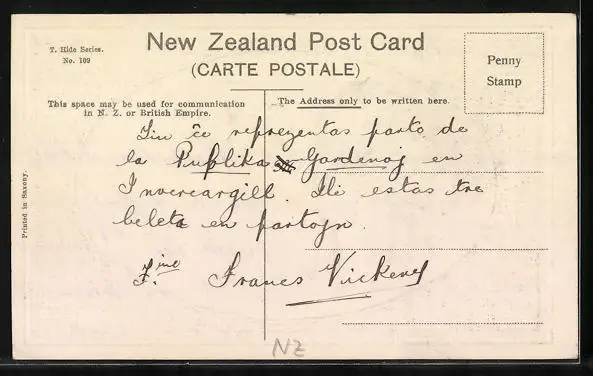 T. Hide Series.
No. 109
New Zealand Post Card
(CARTE POSTALE)
Penny
Stamp
This space may be used for communication
in N. Z. or British Empire.
The Address only to be written here.
Printed in Saxony.
ĉe reprezentas parto de
la Publika Gardenoj en
Invercargill. Ili estas tre
beleta en partojn.
Frances
NZ